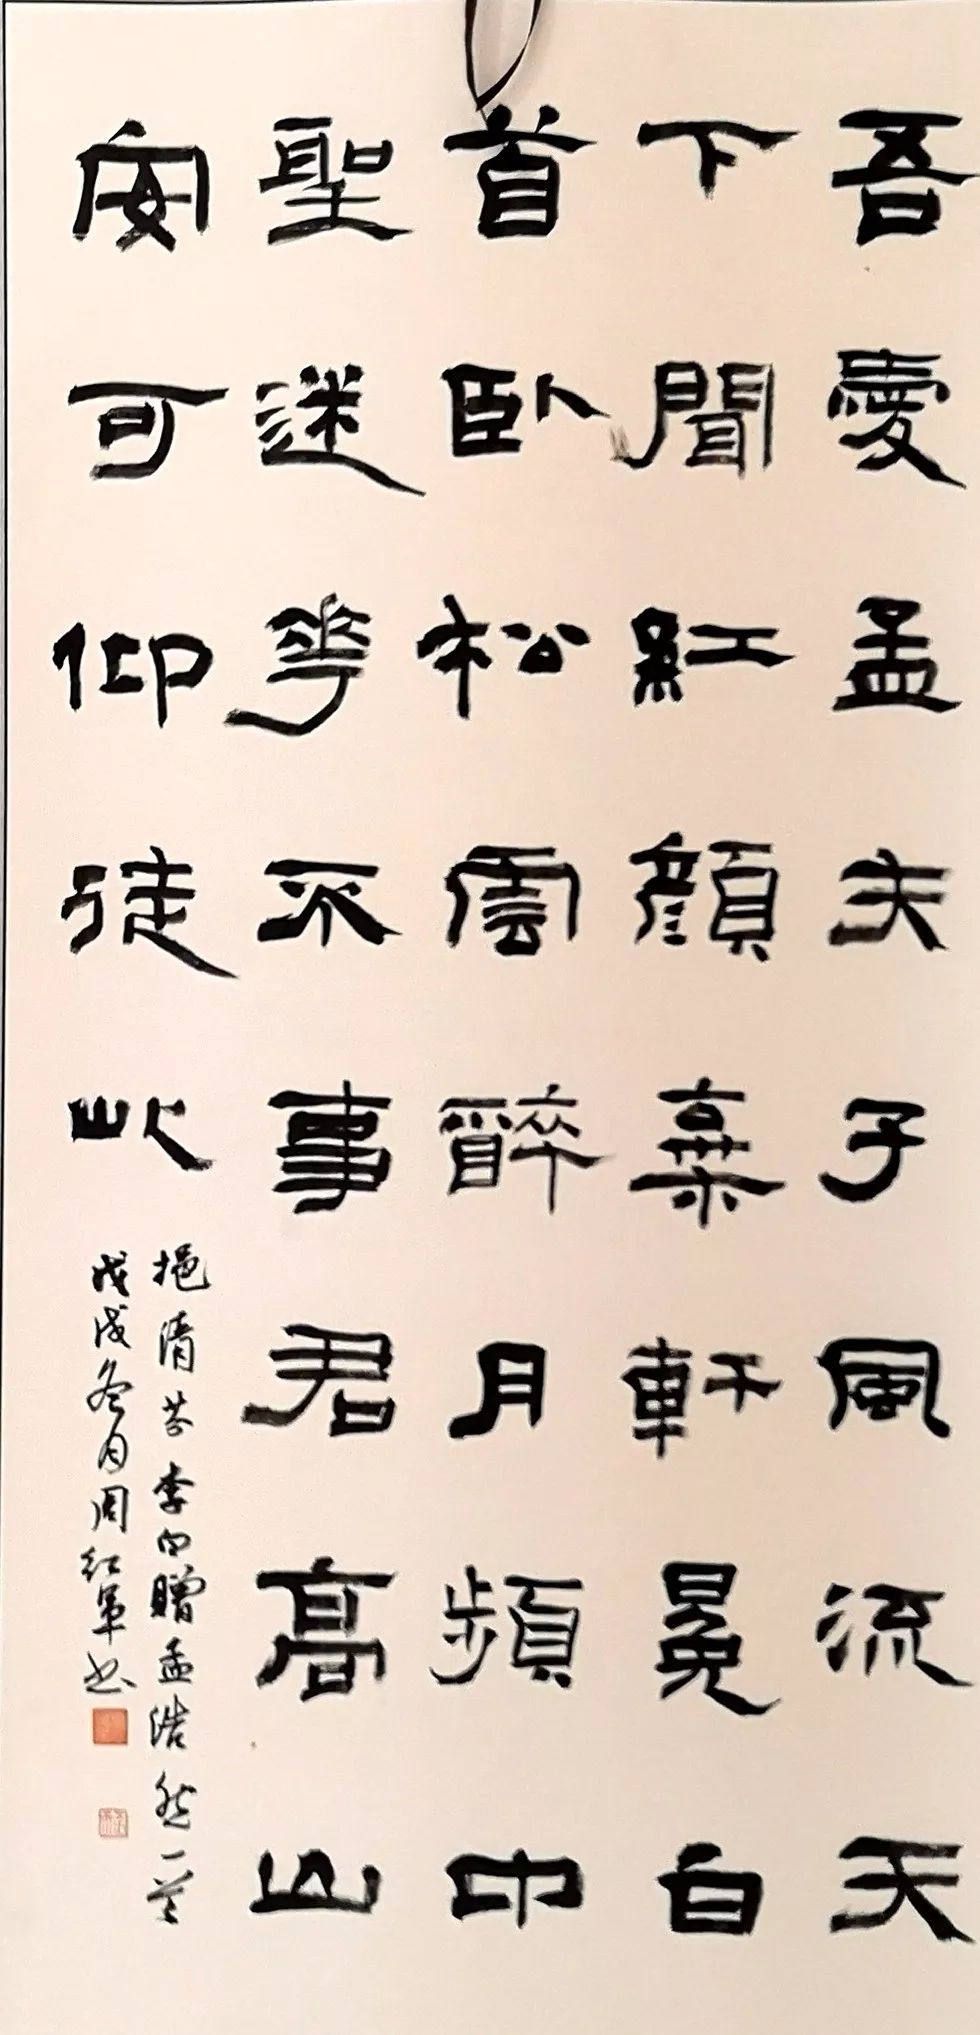 吾愛孟夫子風流天
下聞紅顏棄軒冕白
首卧松雲醉月頻中
聖迷花不事君高山
安可仰徒此
挹清芬李白贈孟浩然一首
戊戌冬月周红軍书